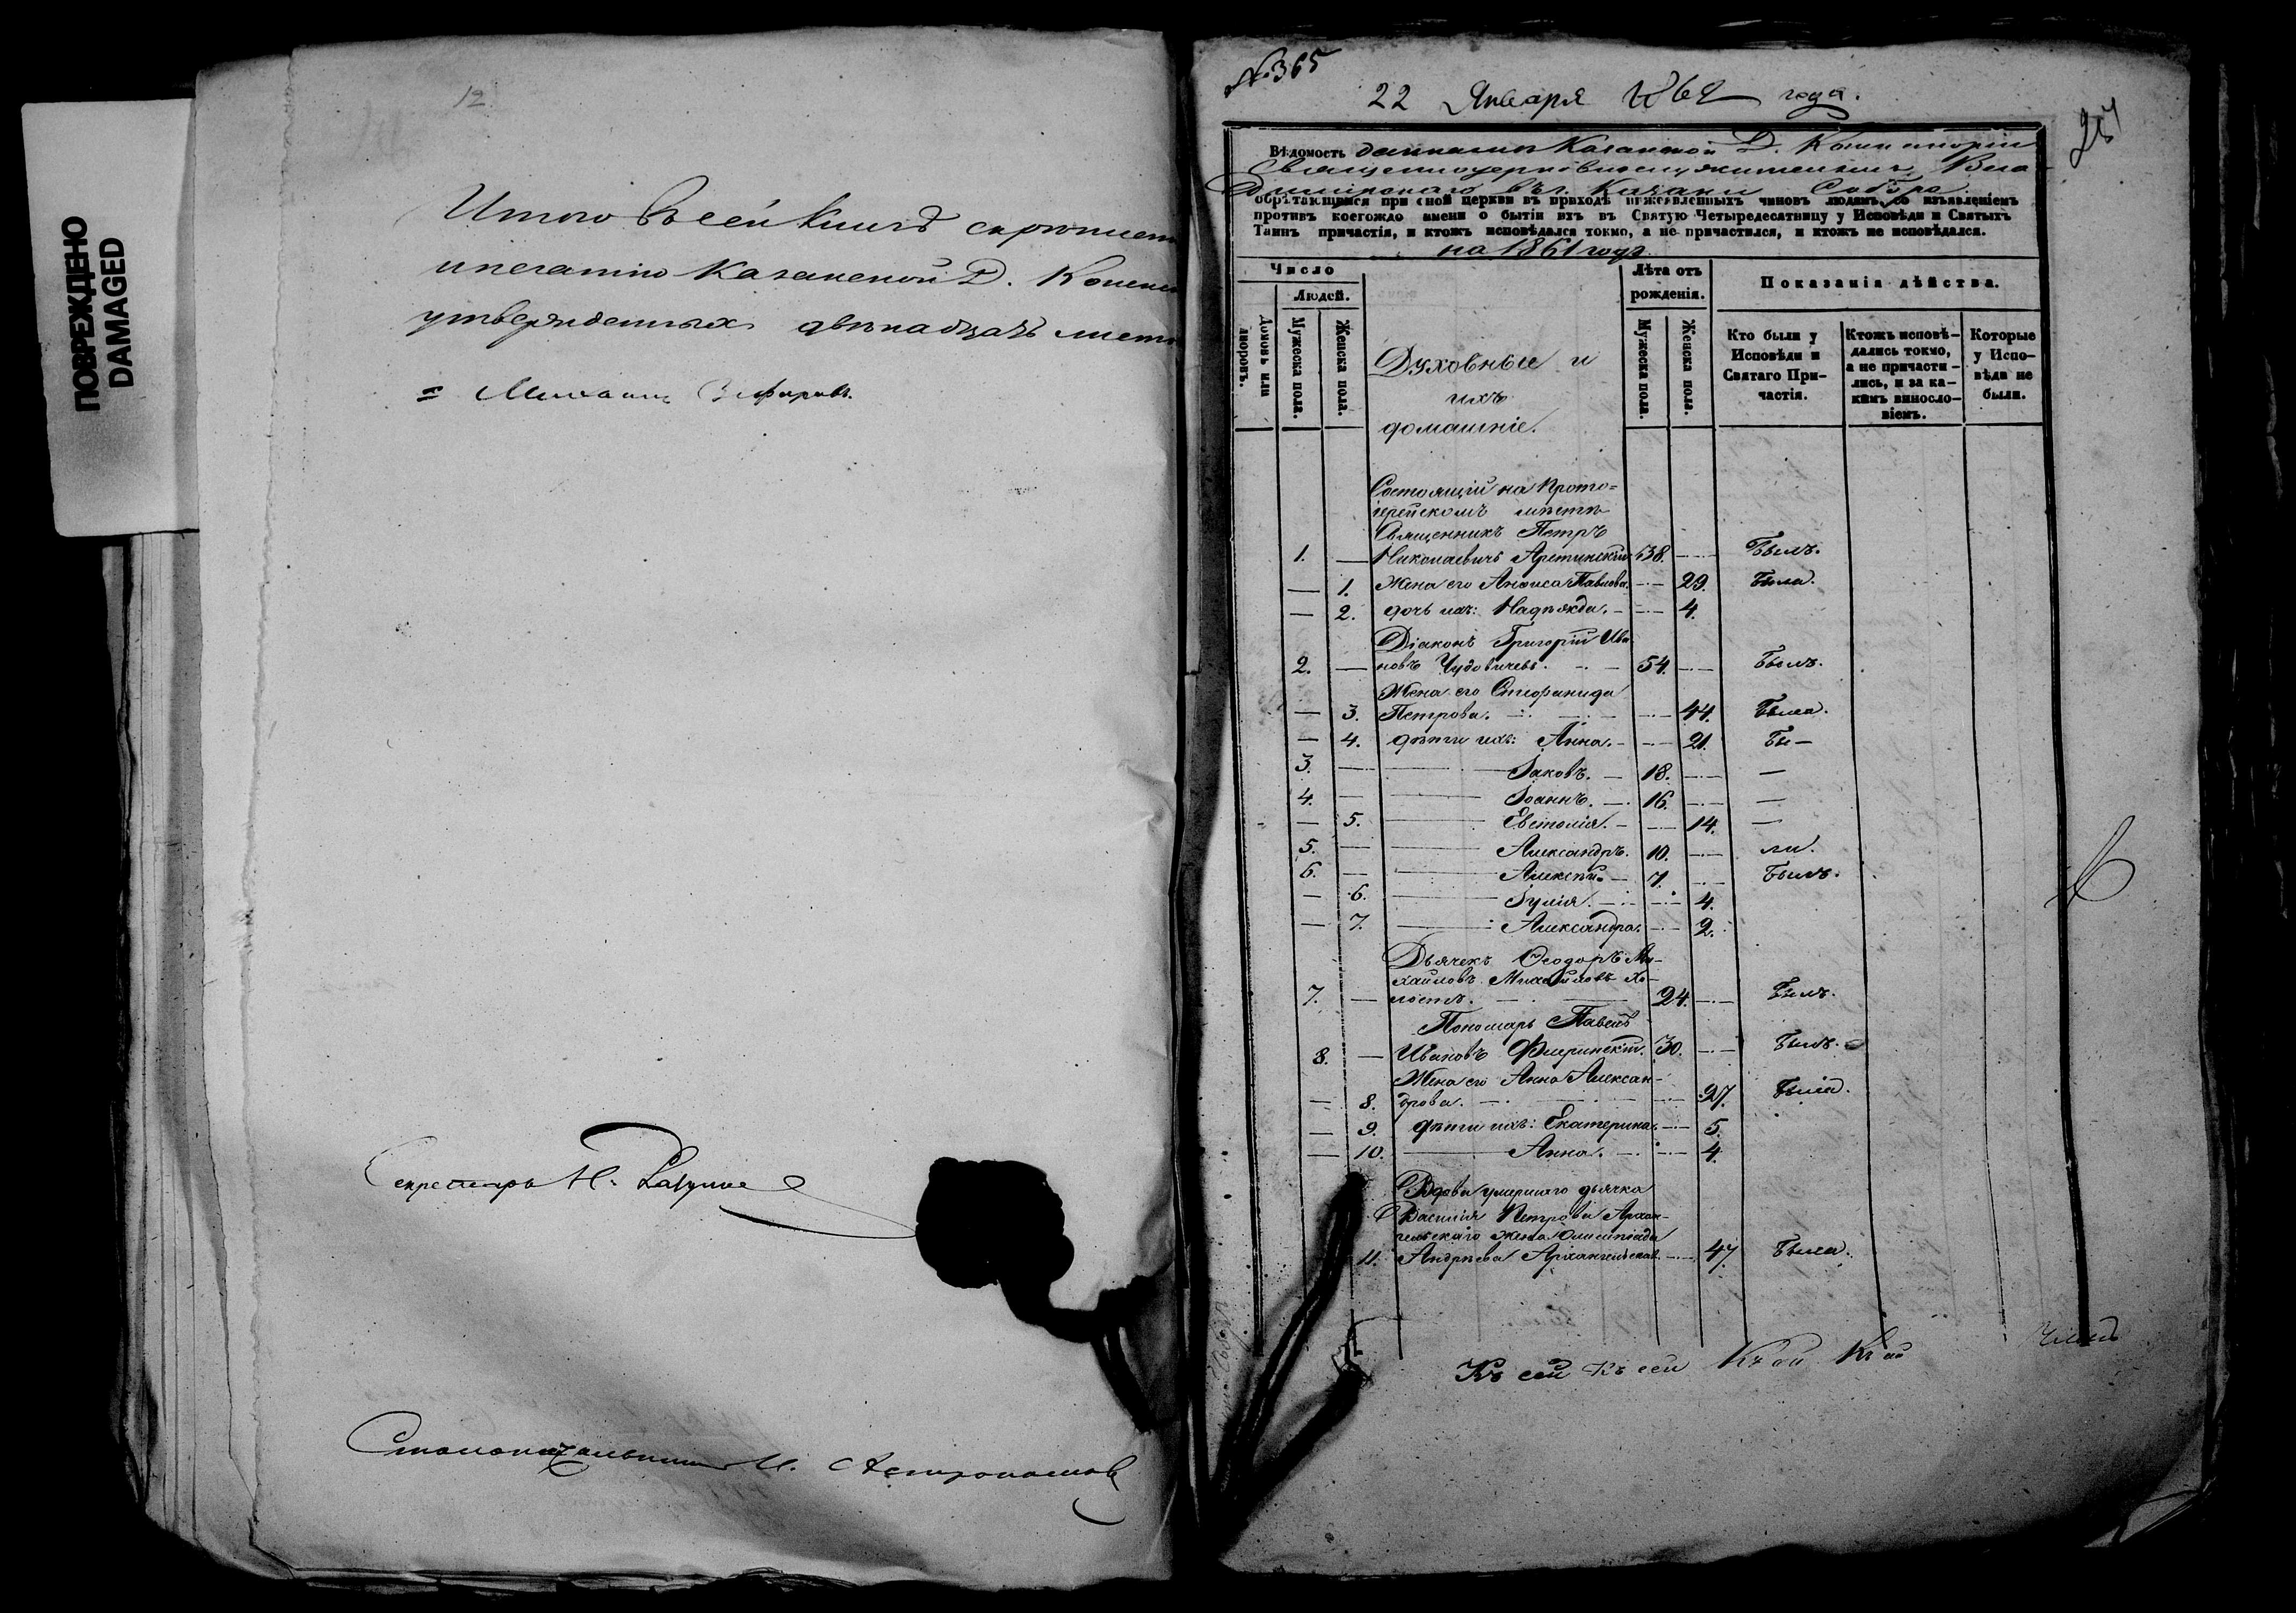 ПОВРЕЖДЕНО
DAMAGED
12
Итого в сей Книгѣ скрѣпленн
и печатію Казанской Д. Консис
утвержденныхъ двѣнадцать лист
= Михаилъ Зефировъ.
Секретарь Н.
Столоначальникъ И.
№ 365
22 Января 1862 года.
Вѣдомость данная изъ Казанской Д. Консисторіи
Священноцерковнослужителямъ Вла-
димірскаго въ г. Казани Собора
обрѣтающимся при оной церкви въ приходѣ нижеявленныхъ чиновъ людямъ, со изъявленіемъ
противъ коегождо имени о бытіи ихъ въ Святую Четыредесятницу у Исповѣди и Святыхъ
Таинъ причастія, и ктожъ исповѣдался токмо, а не причастился, и ктожъ не исповѣдался.
на 1861 годъ.
Число
Людей.
Домовъ или дворовъ.
Мужеска пола.
Женска пола.
Духовные и
ихъ
домашніе.
Лѣта отъ рожденія.
Мужеска пола.
Женска пола.
Показанія дѣйства.
Кто были у Исповѣди и Святаго При-частія.
Ктожъ исповѣ-дались токмо, а не причасти-лись, и за ка-кимъ винословіемъ.
Которые у Испо-вѣди не были.
Состоящій на Прото-
іерейскомъ мѣстѣ
Священникъ Петръ
1. — Николаевичъ Аретинскій 38. — Былъ.
— 1. Жена его Анѳиса Павлова. — 29. Была.
— 2. дочь ихъ: Надежда. — 4.
Діаконъ Григорій Ива-
2. — новъ Чудовичевъ. 54. — Былъ.
Жена его Стефанида
— 3. Петрова. — 44. Была.
— 4. дѣти ихъ: Анна. — 21. Бы—
3. — Іаковъ. — 18. — —
4. — Іоаннъ. — 16. — —
— 5. Евстолія. — 14. —
5. — Александръ. 10. — ли.
6. — Алексѣй. — 7. — Былъ.
— 6. Іулія. — 4.
— 7. Александра. — 2.
Дьячекъ Ѳеодоръ Ми-
хайловъ Михайловъ хо-
7. — лостъ. 24. — Былъ.
Пономарь Павелъ
8. — Ивановъ Флеринскій. 30. — Былъ.
Жена его Анна Алексан-
— 8. дрова. — 27. Была.
— 9. дѣти ихъ: Екатерина. — 5.
— 10. Анна. — 4.
Вдова умершаго дьячка
Василія Петрова Архан-
гельскаго жена Олимпіада
11. Андрѣева Архангельская. — 47. Была.
Къ сей Къ сей Къ сей Къ сей